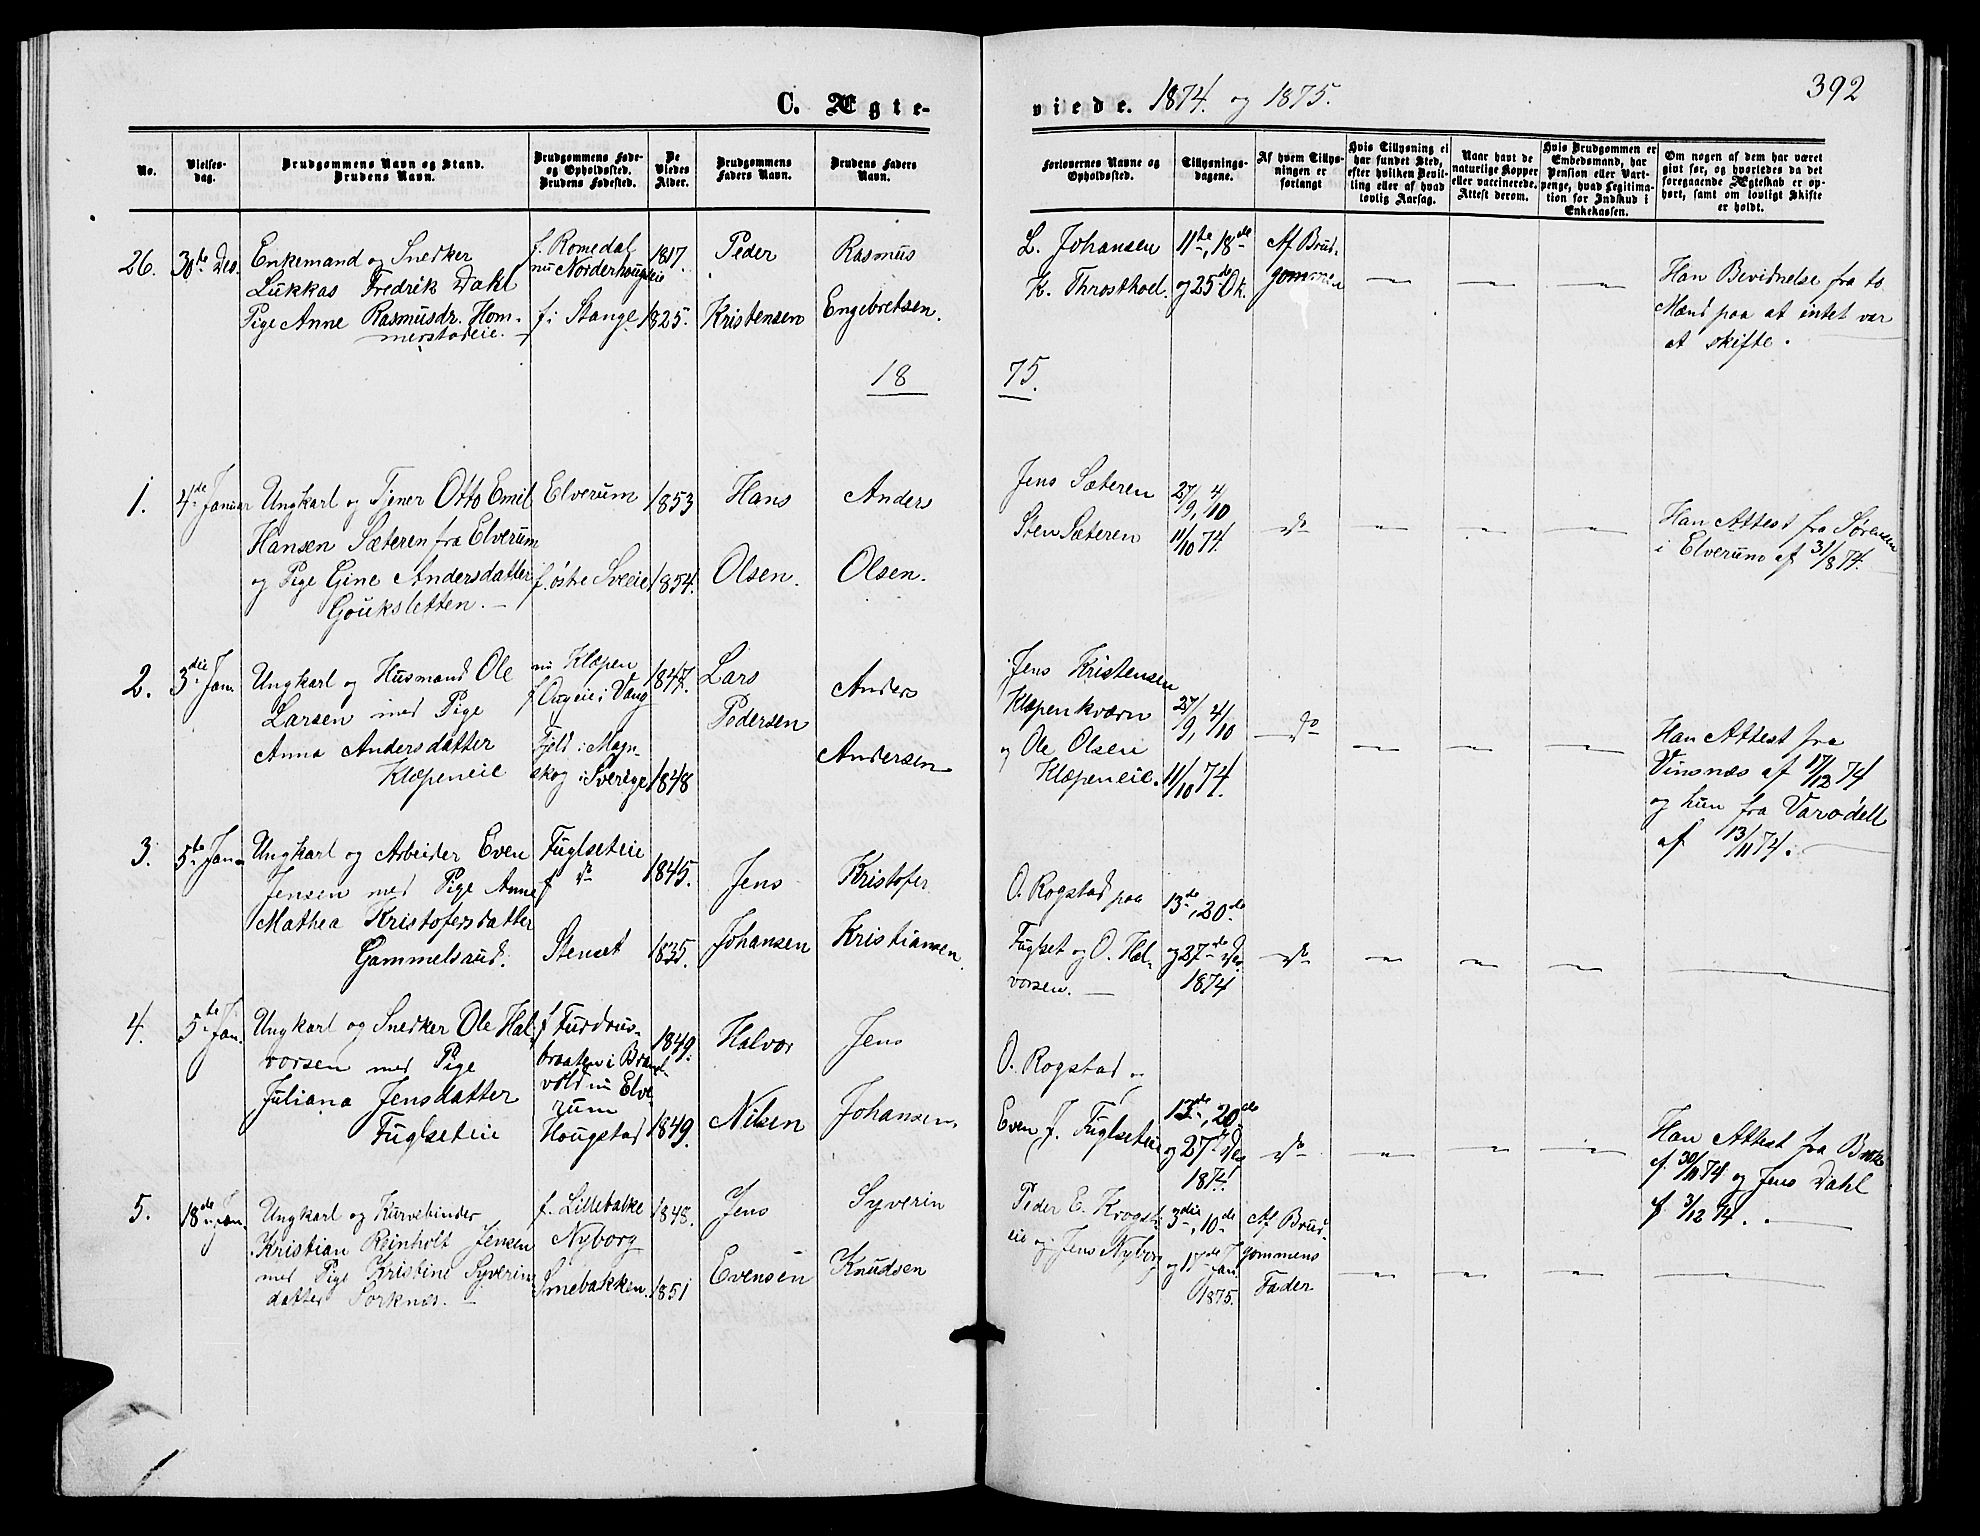 392
C. Ægte-
viede. 1874. og 1875.
No.
Vielses-
dag.
Brudgommens Navn og Stand.
Brudens Navn.
Brudgommens Føde-
og Opholdssted.
Brudens Fødested.
De
Viedes
Alder.
Brudgommens
Faders Navn.
Brudens Faders
Navn.
Forlovernes Navne og
Opholdssted.
Tillysnings-
dagene.
Af hvem Tillys-
ningen er
forlangt
Hvis Tillysning ei
har fundet Sted,
efter hvilken Bevil-
ling eller af hvad
lovlig Aarsag.
Naar havt de
naturlige Kopper
eller vaccinerede.
Attest derom.
Hvis Brudgommen er
Embedsmand, har
Pension eller Vart-
penge, hvad Legitima-
tion for Indskud i
Enkekassen.
Om nogen af dem har været
gift før, og hvorledes da det
foregaaende Ægteskab er op-
hørt, samt om lovligt Skifte
er holdt.
26.
30te Des.
Enkemand og Snedker
Lukkas Fredrik Dahl
Pige Anne Rasmusdr. Hom-
merstadeie.
f. Romedal
nu Norderhougeie
f. i Stange
1817.
1825.
Peder
Kristensen
Rasmus
Engebretsen.
L. Johansen
K. Throsthoel.
11te, 18de
og 25de Ok.
Af Brud-
gommen
Han Bevidnelse fra to
Mænd paa at intet var
at skifte.
18 75.
1.
4de Januar
Ungkarl og Tjener Otto Emil
Hansen Sæteren fra Elverum
og Pige Gine Andersdatter
Gouksletten.
Elverum
f. østre Sveeie
1853
1854.
Hans
Olsen.
Anders
Olsen.
Jens Sæteren
Sten Sæteren
27/9, 4/10
11/10 74.
do
Han Attest fra Sørensen
i Elverum af 31/8 74.
2.
3die Jan.
Ungkarl og Husmand Ole
Larsen med Pige
Anna Andersdatter
Klæpeneie
nu Klæpen
f. i Vang
Fjeld i Magn-
skog i Sverige
1847.
1848
Lars
Pedersen
Anders
Andersen
Jens Kristensen
Klæpenkværn
og Ole Olsen
Klæpeneie.
27/9, 4/10
11/10 74.
do
Han Attest fra
Vinsnæs af 17/12 74
og hun fra Varodell
af 13/11 74.
3.
5te Jan.
Ungkarl og Arbeider Even
Jensen med Pige Anne
Mathea Kristofersdatter
Gammelsaud.
Fuglseteie
f do
Stenset
1845.
1835.
Jens
Johansen
Kristofer
Kristiansen.
O. Rogstad paa
Fuglset og O. Hal-
vorsen.
13de, 20de
og 27de Des.
1874
do
4.
5te Jan.
Ungkarl og Snedker Ole Hal-
vorsen med Pige
Juliana Jensdatter
Fuglseteie
f Furdrus-
braaten i Brand-
vold nu Elve-
rum
Hougstad
1849.
1849.
Halvor
Nilsen
Jens
Johansen.
O. Rogstad og
Even J. Fuglseteie
13de, 20de
og 27de Des
1874.
do
Han Attest fra
af 30/11 74 og Jens Dahl
af 3/12 74.
5.
18de Jan.
Ungkarl og Kurvebinder
Kristian Reinholt Jensen
med Pige Kristine Syverins
datter Sorknes.
f. Lillebakke
Nyborg
Smebakken.
1848.
1851
Jens
Evensen
Syverin
Knudsen
Peder E. Krogst-
eie og Jens Nyborg
3die, 10de
og 17de Jan.
1875.
Af Brud-
gommens
Fader